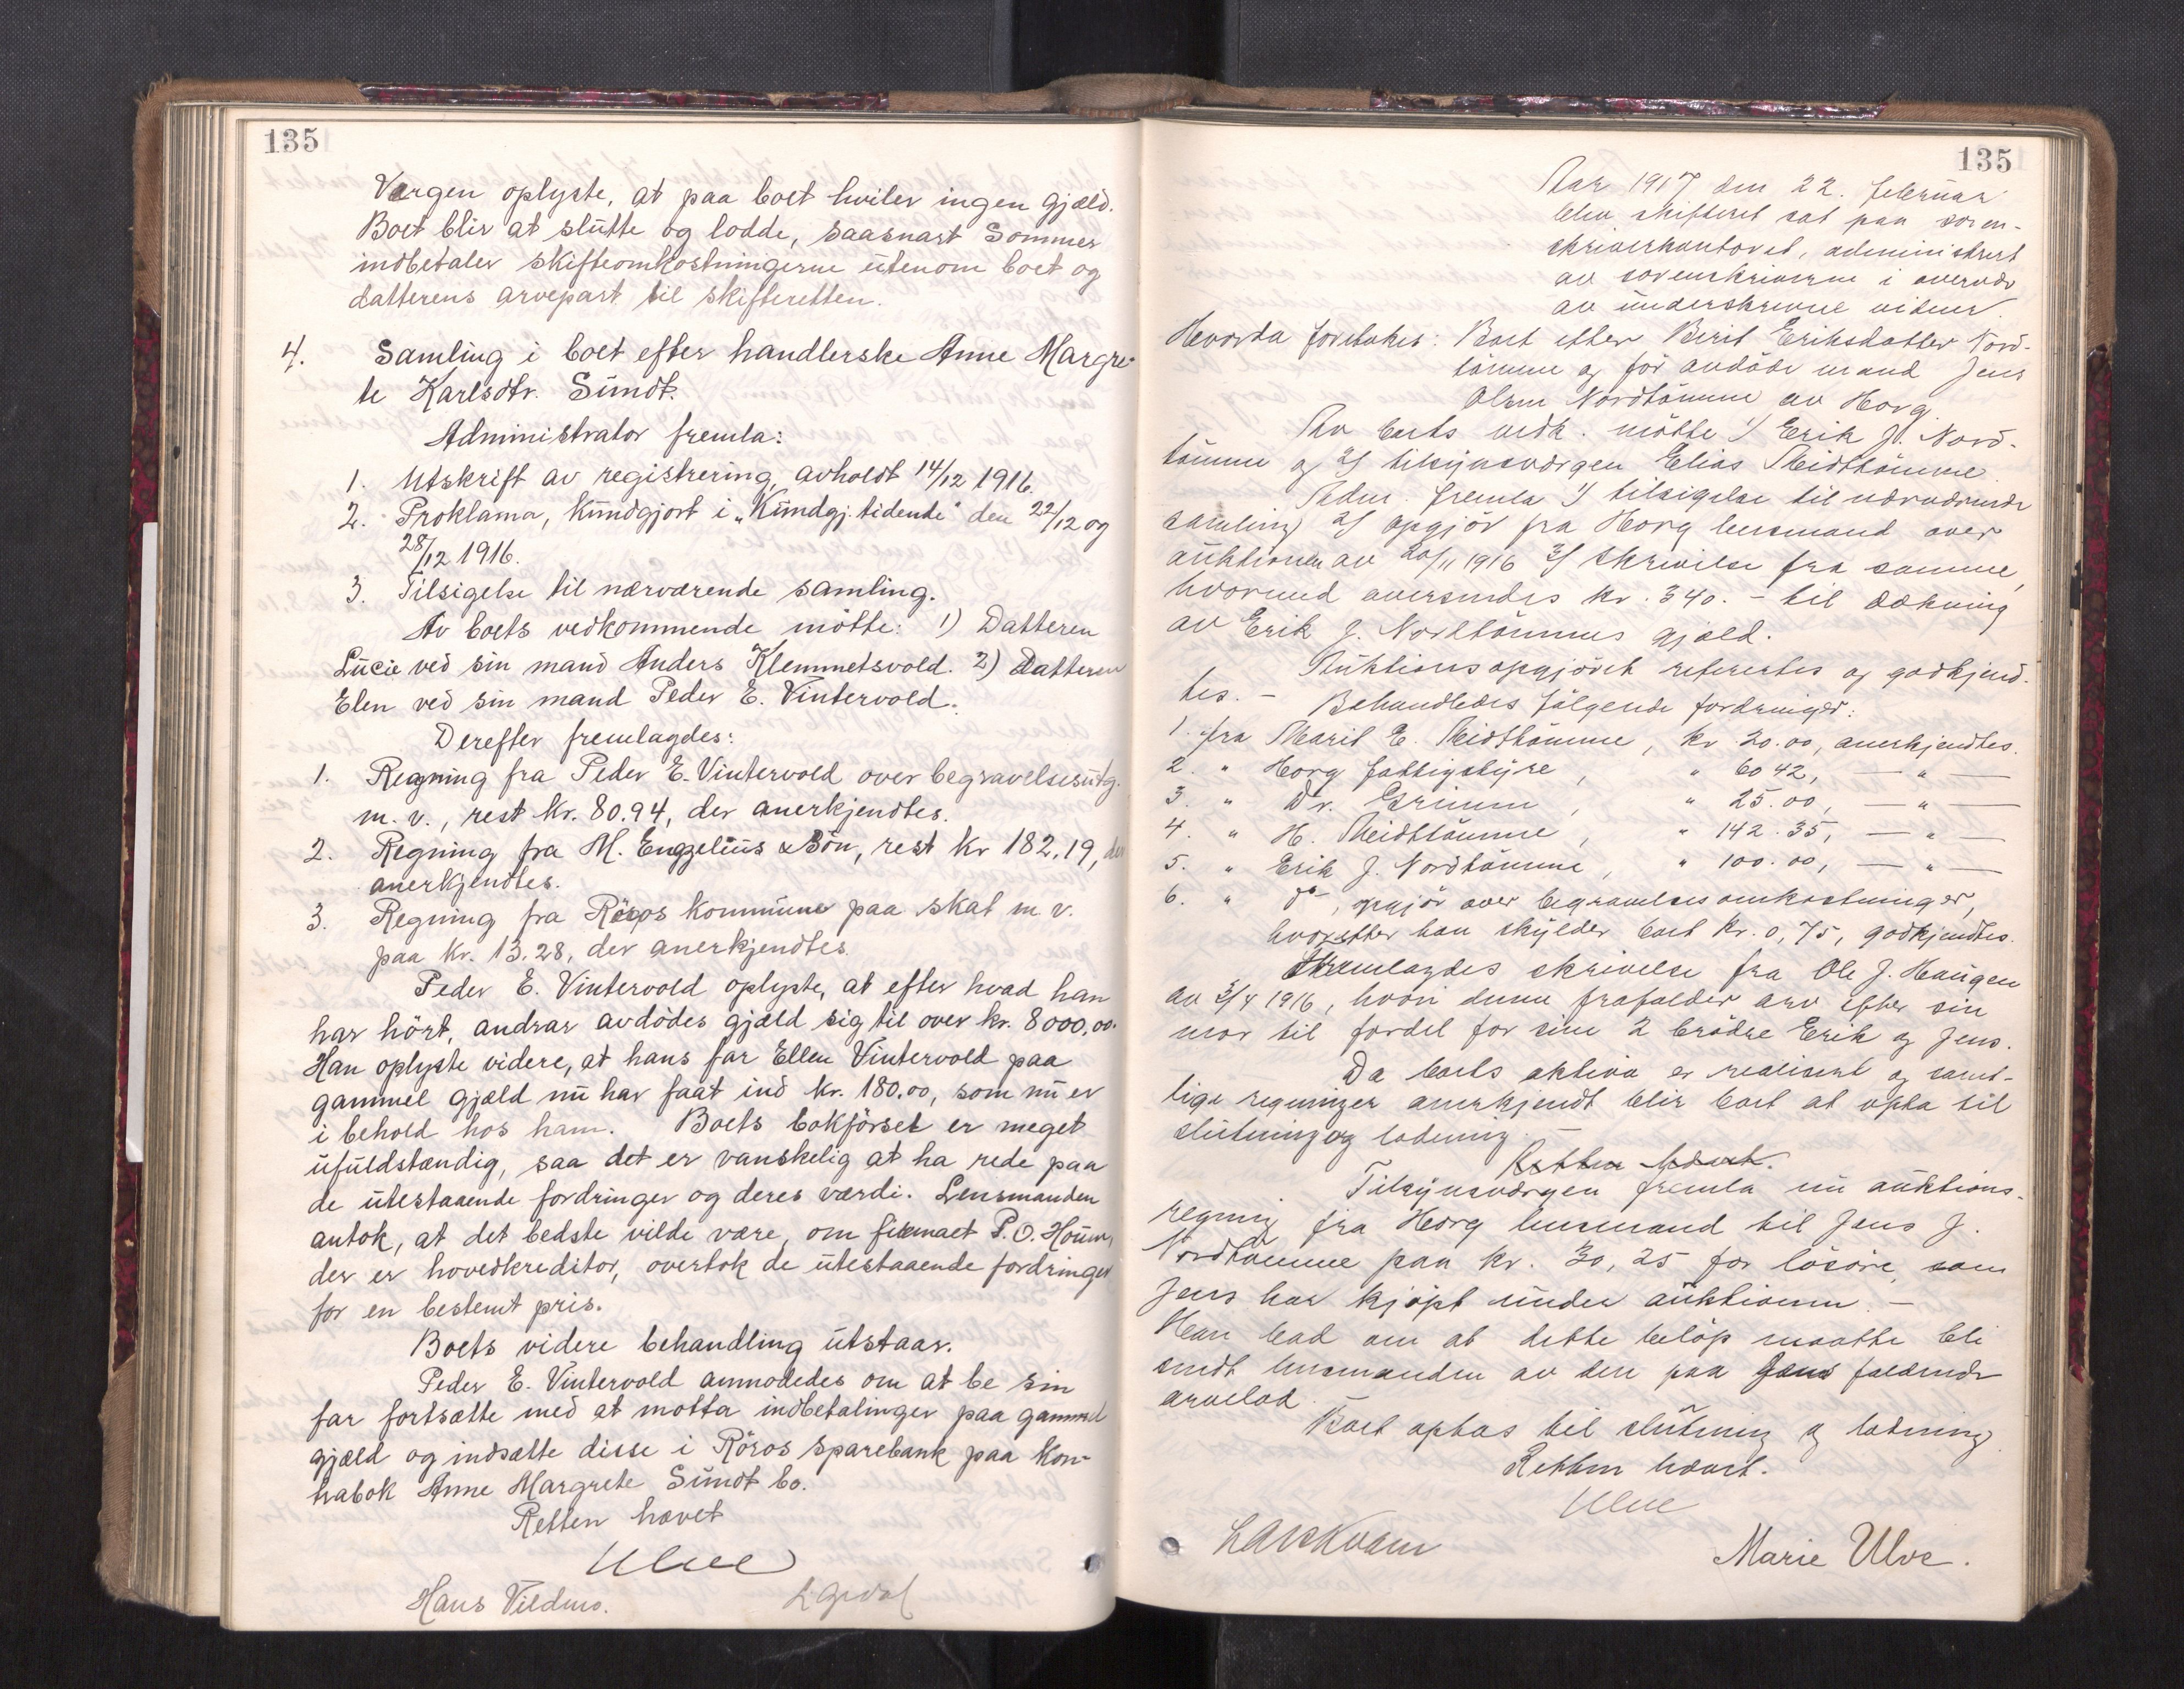 135
Værgen oplyste, at paa boet hviler ingen gjæld.
Boet blir at slutte og lodde, saasnart Sommer
indbetaler skifteomkostningerne utenom boet og
datterens arvepart til skifteretten.
4. Samling i boet efter handlerske Anne Margre-
te Karlsdtr. Sundt.
Administrator fremla:
1. Utskrift av registrering, avholdt 14/12 1916.
2. Proklama, kundgjort i "Kundgj. tidende" den 22/12 og
28/12 1916.
3. Tilsigelse til nærværende samling.
Av boets vedkommende møtte: 1) Datteren
Lucie ved sin mand Anders Klemmetsvold. 2) Datteren
Elen ved sin mand Peder E. Vintervold.
Derefter fremlagdes:
1. Regning fra Peder E. Vintervold over begravelsesutg.
m. v., rest kr. 80.94, der anerkjendtes.
2. Regning fra M. Engzelius & Søn, rest kr 182,19, der
anerkjendtes.
3. Regning fra Røros kommune paa skat m. v.
paa kr. 13.28, der anerkjendtes.
Peder E. Vintervold oplyste, at efter hvad han
har hørt, andrar avdødes gjæld sig til over kr. 8000,00.
Han oplyste videre, at hans far Ellen Vintervold paa
gammel gjæld nu har faat ind kr. 180.00, som nu er
i behold hos ham. Boets bokførsel er meget
ufuldstændig, saa det er vanskelig at ha rede paa
de utestaaende fordringer og deres værdi. Lensmanden
antok, at det bedste vilde være, om firmaet P. O. Houm,
der er hovedkreditor, overtok de utestaaende fordringer
for en bestemt pris.
Boets videre behandling utstaar.
Peder E. Vintervold anmodedes om at be sin
far fortsætte med at motta indbetalinger paa gammel
gjæld og indsætte disse i Røros sparebank paa kon-
trabok Anne Margrete Sundt bo.
Retten hævet
Ulve
Hans Vildmo.
135
Aar 1917 den 22. februar
blev skifteret sat paa soren-
skriverkontoret, administrert
av sorenskriveren i overvær
av underskrevne vidner.
Hvorda foretokes: Boet efter Berit Eriksdatter Nord-
tømme og før avdøde mand Jens
Olsen Nordtømme av Horg.
Av boets vedk. møtte 1/ Erik J. Nord-
tømme og 2/ tilsynsværgen Elias Midttømme.
Adm. fremla 1/ tilsigelse til nærværende
samling 2/ opgjør fra Horg lensmand over
auktionen av 20/11 1916 3/ skrivelse fra samme,
hvormed oversendes kr. 340.- til dækning
av Erik J. Nordtømmes gjæld.
Auktionsopgjøret refertes og godkjend-
tes. - Behandledes følgende fordringer:
1. fra Marit E. Midttømme, kr 30.00, anerkjendtes.
2. " Horg fattigstyre, " 60 42, — " —
3. " Dr. Grimm, " 25.00, — " —
4. " H. Midttømme, " 142.35, — " —
5. " Erik J. Nordtømme, " 100.00, — " —
6. " do, opgjør over begravelsesomkostninger,
hvorefter han skylder boet kr. 0,75, godkjendtes.
Fremlagdes skrivelse fra Ole J. Haugen
av 3/4 1916, hvori denne frafalder arv efter sin
mor til fordel for sine 2 brødre Erik og Jens.
Da boets aktiva er realisert og samt-
lige regninger anerkjendt blir boet at opta til
slutning og lodning. -
Retten hævet.
Tilsynsværgen fremla nu auktions-
regning fra Horg lensmand til Jens J.
Nordtømme paa kr. 30,25 for løsøre, som
Jens har kjøpt under auktionen. -
Han bad om at dette beløp maatte bli
sendt lensmanden av den paa Jens faldende
arvelod.
Boet optas til slutning og lodning.
Retten hævet.
Ulve
Lars Kvam
Marie Ulve.